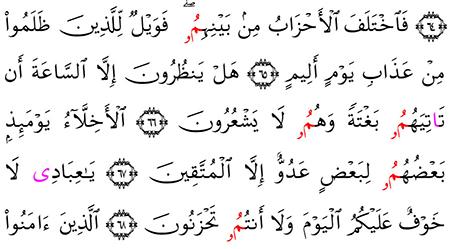 ﴿٦٤﴾ فَاخْتَلَفَ الْأَحْزَابُ مِنۢ بَيْنِهِمُۥ ۖ فَوَيْلٌ لِّلَّذِينَ ظَلَمُوا۟
مِنْ عَذَابِ يَوْمٍ أَلِيمٍ ﴿٦٥﴾ هَلْ يَنظُرُونَ إِلَّا السَّاعَةَ أَن
تَاتِيَهُمُۥ بَغْتَةً وَهُمُۥ لَا يَشْعُرُونَ ﴿٦٦﴾ الْأَخِلَّآءُ يَوْمَئِذٍۭ
بَعْضُهُمُۥ لِبَعْضٍ عَدُوٌّ إِلَّا الْمُتَّقِينَ ﴿٦٧﴾ يَـٰعِبَادِى لَا
خَوْفٌ عَلَيْكُمُ الْيَوْمَ وَلَا أَنتُمُۥ تَحْزَنُونَ ﴿٦٨﴾ الَّذِينَ ءَامَنُوا۟